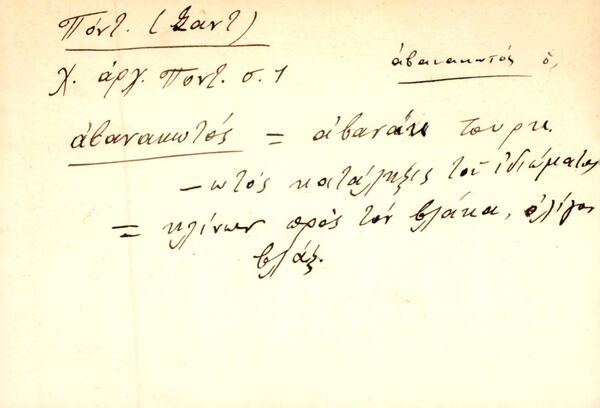 Πόντ. (Σαντ)
Χ. ἀρχ. Ποντ. σ. 1
ἀβανακωτός ὁ,
ἀβανακωτός = ἀβανάκ τουρκ.
-ωτός κατάληξις τοῦ ἰδιώματος
= κλίνων πρὸς τὸν βλάκα, ὀλίγον
βλάξ.